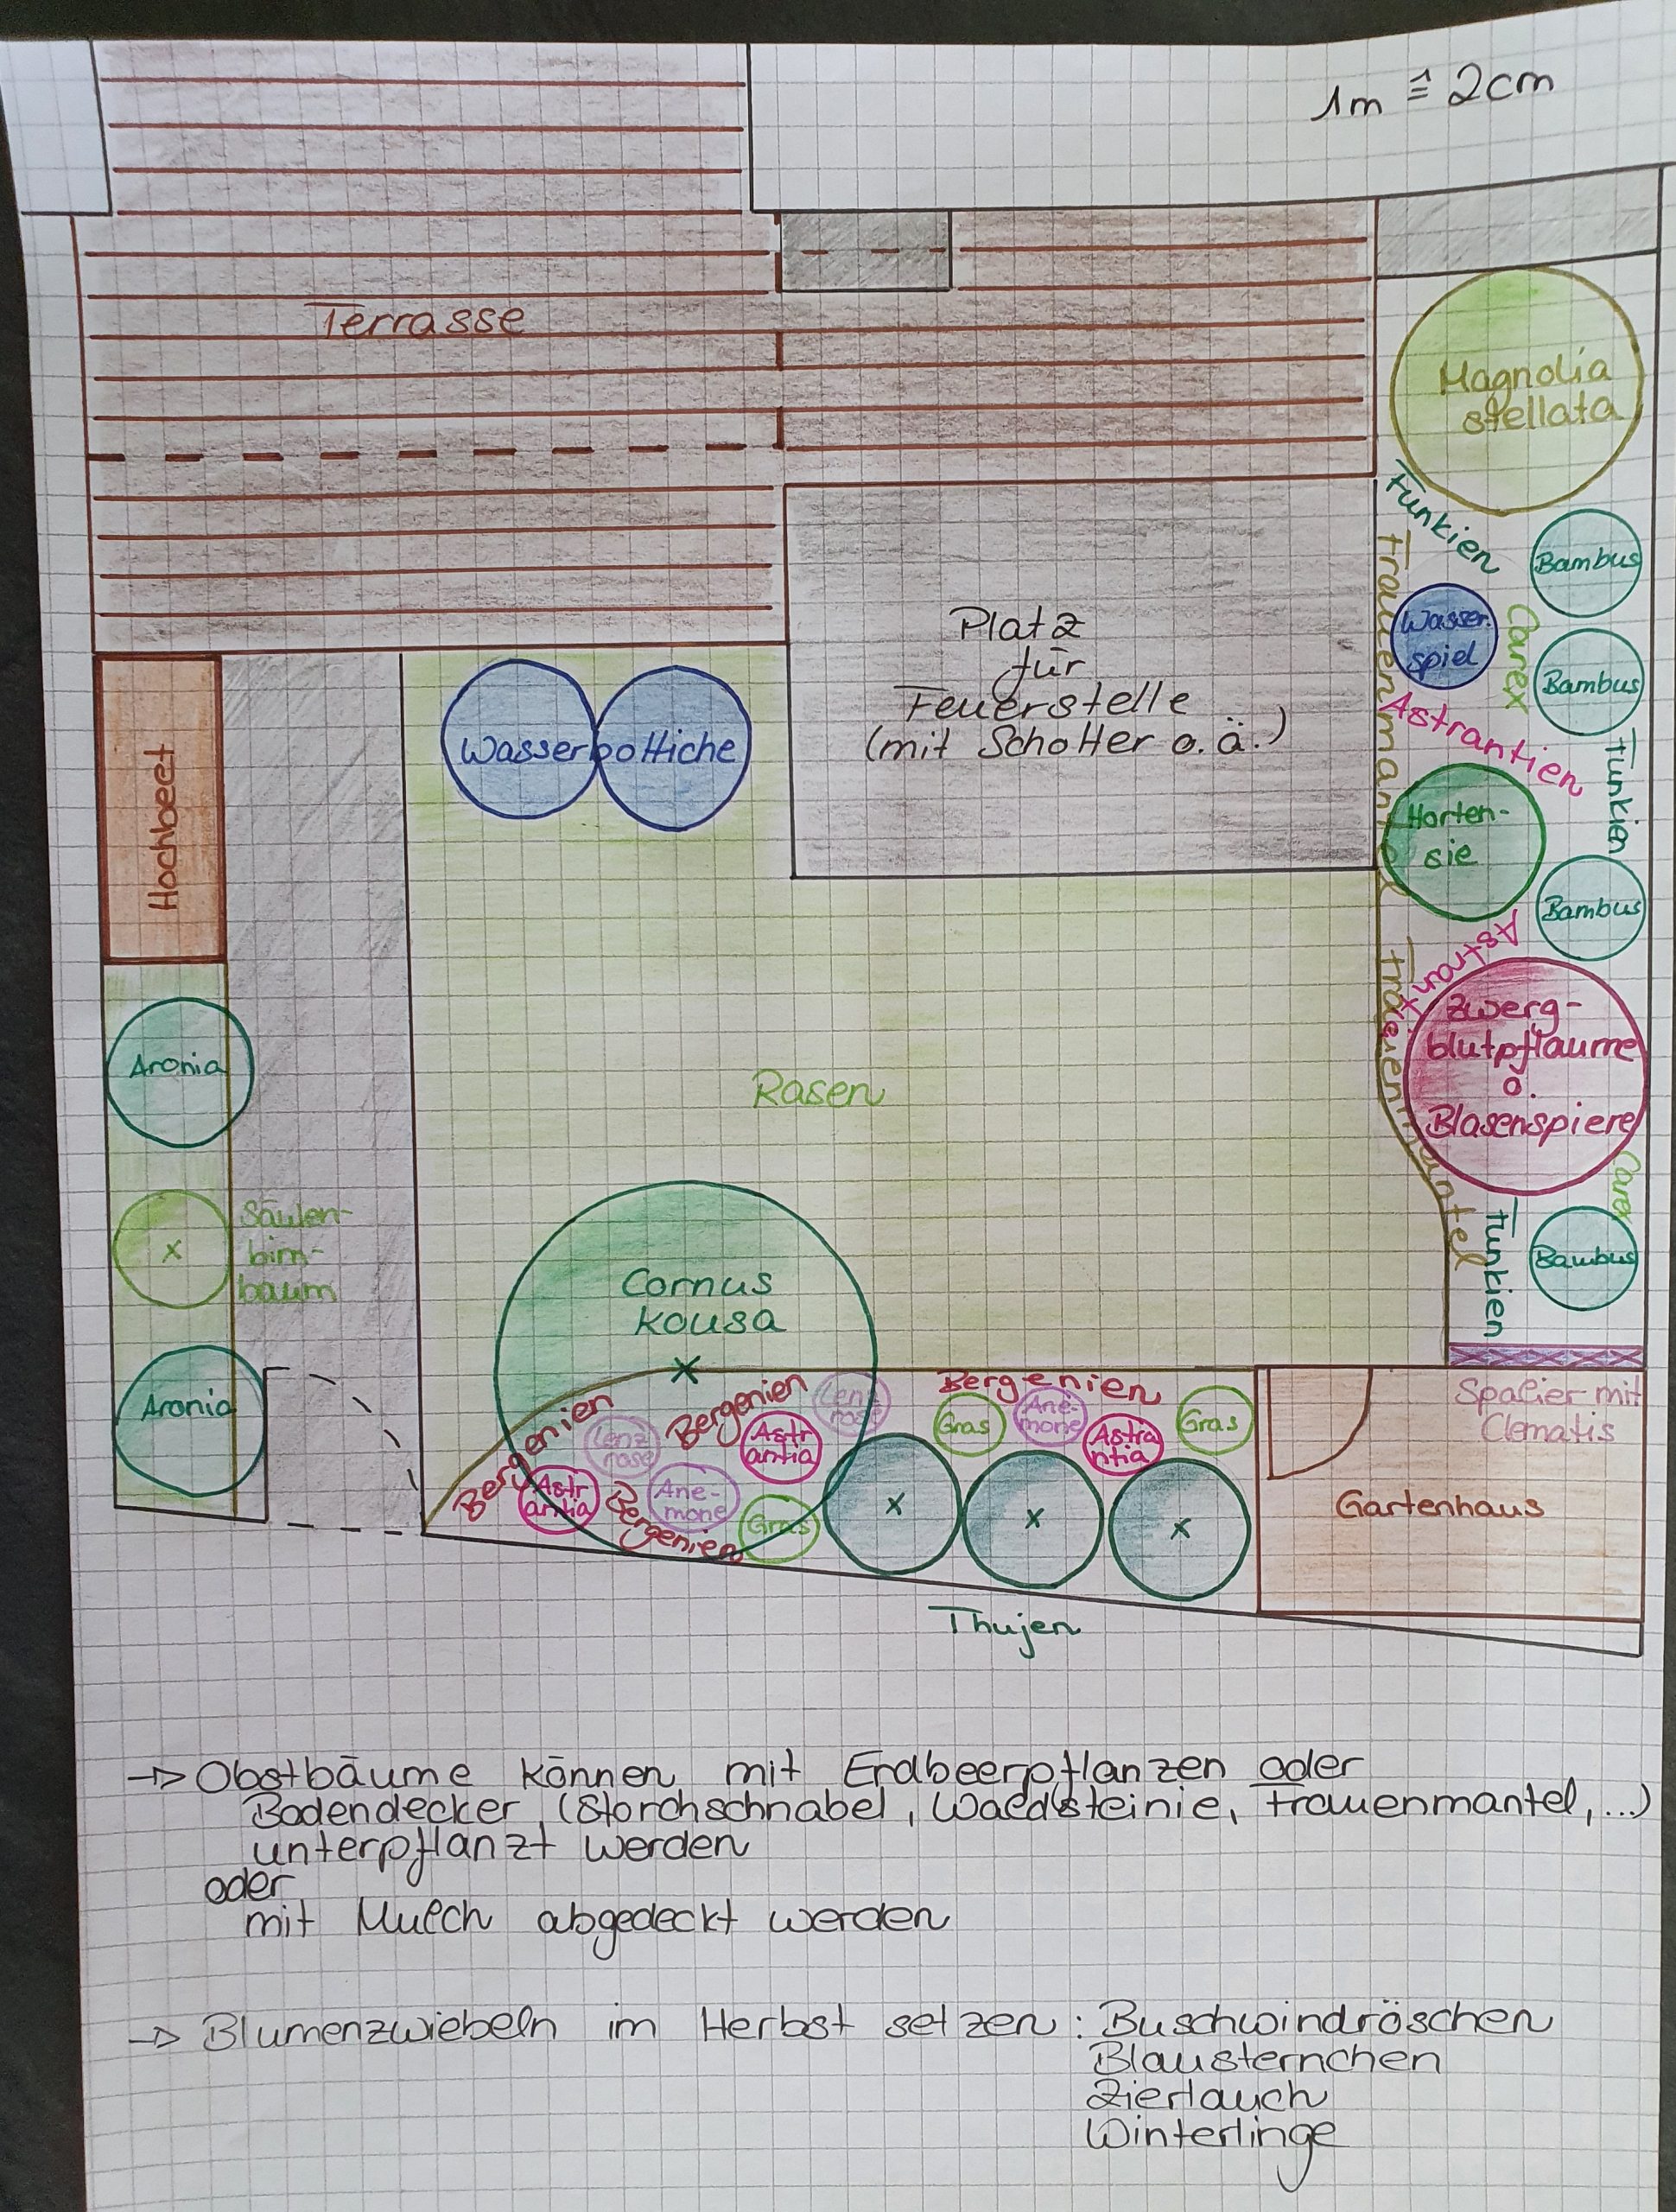 1m ≙ 2cm
Terrasse
Magnolia
stellata
Funkien
Frauenmantel
Bambus
Wasser
spiel
Carex
Bambus
Astrantien
Funkien
Platz
für
Feuerstelle
(mit Schotter o. ä.)
Wasserbottiche
Hochbeet
Horten-
sie
Bambus
Astrant
Frauenmantel
Zwerg-
blutpflaume
o.
Blasenspiere
Carex
Funkien
Bambus
Aronia
Rasen
Säulen-
birn-
baum
x
Aronia
Cornus
kousa
x
Bergenien
Bergenien
Lenz
rose
Bergenien
Gras
Ane-
mone
Astra
ntia
Gras
Lenz
rose
Astr
antia
Astr
antia
Ane-
mone
Bergenien
Gras
x
x
x
Spalier mit
Clematis
Gartenhaus
Thujen
→ Obstbäume können mit Erdbeerpflanzen oder
Bodendecker (Storchschnabel, Waldsteinie, Frauenmantel,...)
unterpflanzt werden
oder
mit Mulch abgedeckt werden
→ Blumenzwiebeln im Herbst setzen: Buschwindröschen
Blausternchen
Zierlauch
Winterlinge